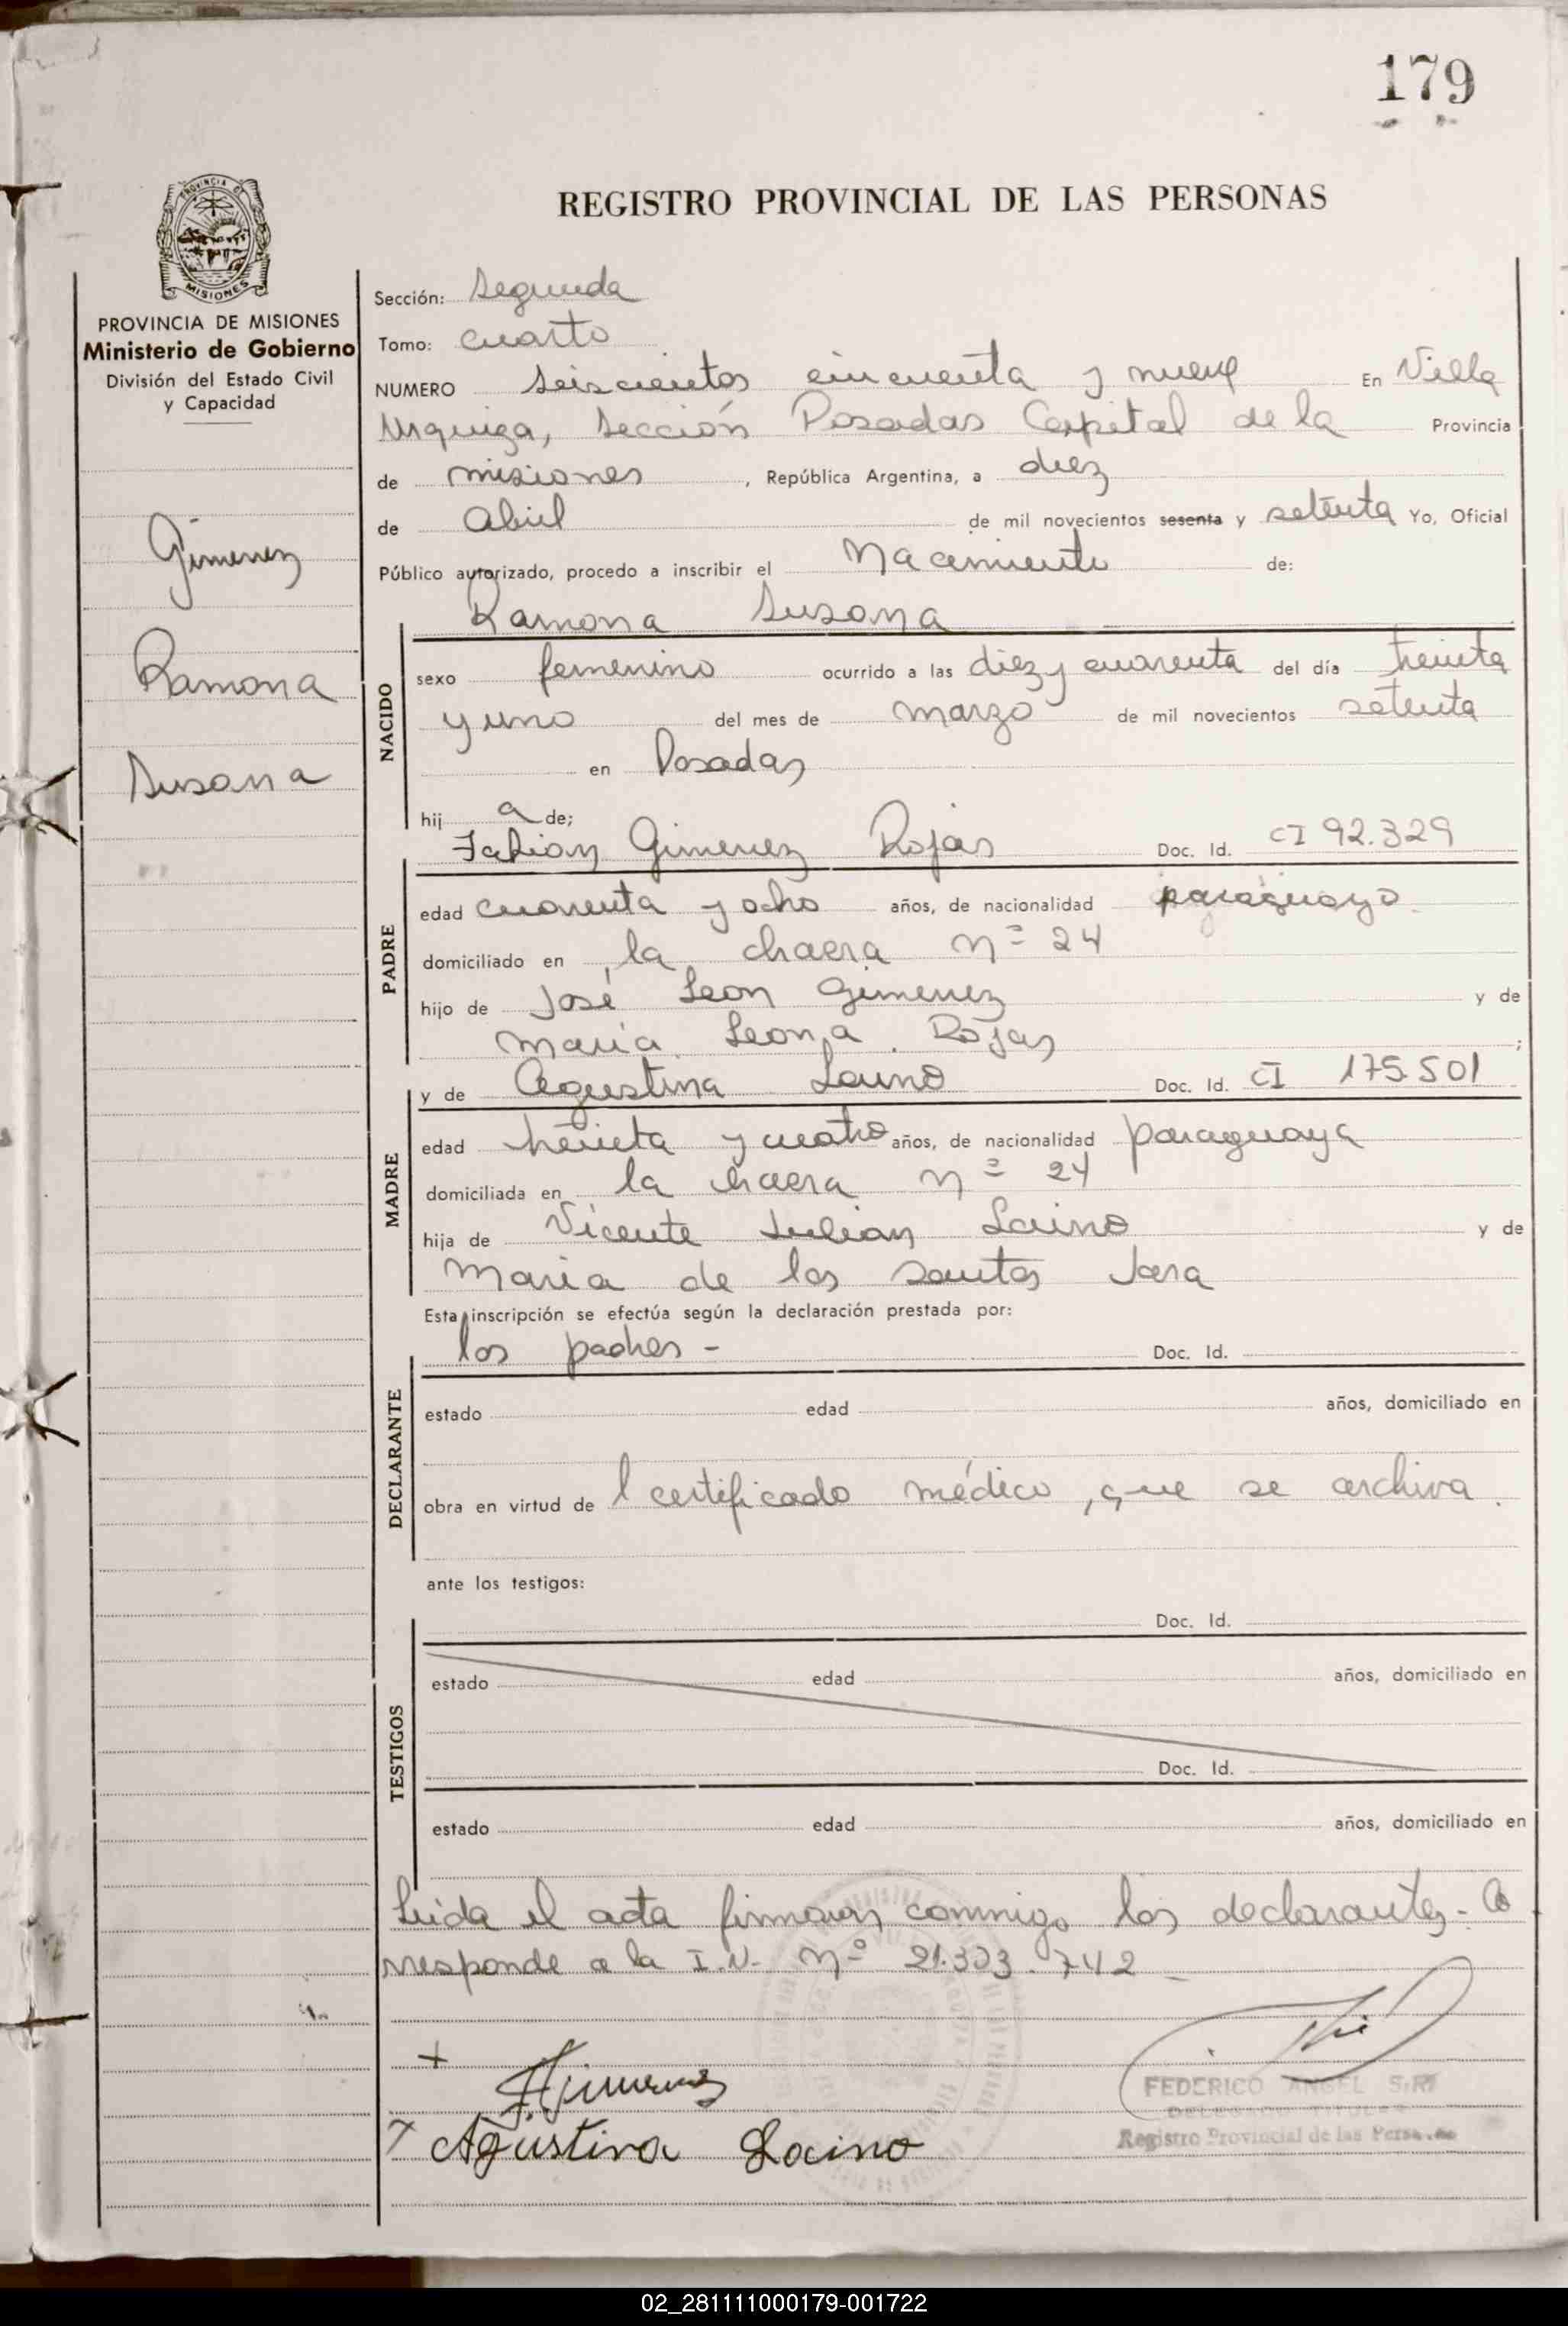 179
REGISTRO PROVINCIAL DE LAS PERSONAS
PROVINCIA DE MISIONES
Ministerio de Gobierno
División del Estado Civil
y Capacidad
Gimenez
Ramona
Susana
Sección: Segunda
Tomo: cuarto
NUMERO seiscientos cincuenta y nueve En Villa
Urquiza, Sección Posadas Capital de la Provincia
de misiones, República Argentina, a diez
de Abril de mil novecientos sesenta y setenta Yo, Oficial
Público autorizado, procedo a inscribir el Nacimiento de:
Ramona Susana
NACIDO
sexo femenino ocurrido a las diez y cuarenta del día treinta
y uno del mes de marzo de mil novecientos setenta
en Posadas
hij a de;
Fabian Gimenez Rojas Doc. Id. CI 92.329
PADRE
edad cuarenta y ocho años, de nacionalidad paraguayo
domiciliado en la chacra nº 24
hijo de José Leon Gimenez y de
maria Leona Rojas ;
y de Agustina Laino Doc. Id. CI 175.501
MADRE
edad treinta y cuatro años, de nacionalidad paraguaya
domiciliada en la chacra nº 24
hija de Vicente Julian Laino y de
Maria de los santos Jara
Esta inscripción se efectúa según la declaración prestada por:
los padres - Doc. Id.
DECLARANTE
estado edad años, domiciliado en
obra en virtud de l certificado médico, que se archiva.
ante los testigos:
Doc. Id.
TESTIGOS
estado edad años, domiciliado en
Doc. Id.
estado edad años, domiciliado en
Leida el acta firmaron conmigo los declarantes - Co
rresponde a la I.N. nº 21.303.742 -
+ F. Gimenez
FEDERICO ANGEL
DELEGADO TITULAR
Registro Provincial de las Personas
x Agustina Laino
02_281111000179-001722